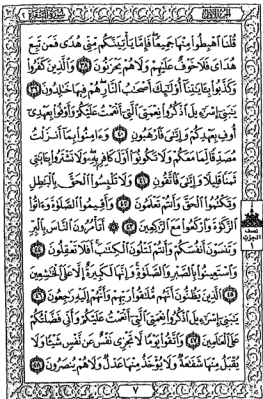 الجزء الأول سورة البقرة ٢
قُلْنَا ٱهْبِطُوا۟ مِنْهَا جَمِيعًا فَإِمَّا يَأْتِيَنَّكُم مِّنِّى هُدًى فَمَن تَبِعَ
هُدَاىَ فَلَا خَوْفٌ عَلَيْهِمْ وَلَا هُمْ يَحْزَنُونَ ٣٨ وَٱلَّذِينَ كَفَرُوا۟
وَكَذَّبُوا۟ بِـَٔايَـٰتِنَآ أُو۟لَـٰٓئِكَ أَصْحَـٰبُ ٱلنَّارِ هُمْ فِيهَا خَـٰلِدُونَ ٣٩
يَـٰبَنِىٓ إِسْرَٰٓءِيلَ ٱذْكُرُوا۟ نِعْمَتِىَ ٱلَّتِىٓ أَنْعَمْتُ عَلَيْكُمْ وَأَوْفُوا۟ بِعَهْدِىٓ
أُوفِ بِعَهْدِكُمْ وَإِيَّـٰىَ فَٱرْهَبُونِ ٤٠ وَءَامِنُوا۟ بِمَآ أَنزَلْتُ
مُصَدِّقًا لِّمَا مَعَكُمْ وَلَا تَكُونُوٓا۟ أَوَّلَ كَافِرٍۭ بِهِۦ وَلَا تَشْتَرُوا۟ بِـَٔايَـٰتِى
ثَمَنًا قَلِيلًا وَإِيَّـٰىَ فَٱتَّقُونِ ٤١ وَلَا تَلْبِسُوا۟ ٱلْحَقَّ بِٱلْبَـٰطِلِ
وَتَكْتُمُوا۟ ٱلْحَقَّ وَأَنتُمْ تَعْلَمُونَ ٤٢ وَأَقِيمُوا۟ ٱلصَّلَوٰةَ وَءَاتُوا۟
ٱلزَّكَوٰةَ وَٱرْكَعُوا۟ مَعَ ٱلرَّٰكِعِينَ ٤٣ أَتَأْمُرُونَ ٱلنَّاسَ بِٱلْبِرِّ
وَتَنسَوْنَ أَنفُسَكُمْ وَأَنتُمْ تَتْلُونَ ٱلْكِتَـٰبَ أَفَلَا تَعْقِلُونَ ٤٤
وَٱسْتَعِينُوا۟ بِٱلصَّبْرِ وَٱلصَّلَوٰةِ وَإِنَّهَا لَكَبِيرَةٌ إِلَّا عَلَى ٱلْخَـٰشِعِينَ
٤٥ ٱلَّذِينَ يَظُنُّونَ أَنَّهُم مُّلَـٰقُوا۟ رَبِّهِمْ وَأَنَّهُمْ إِلَيْهِ رَٰجِعُونَ
٤٦ يَـٰبَنِىٓ إِسْرَٰٓءِيلَ ٱذْكُرُوا۟ نِعْمَتِىَ ٱلَّتِىٓ أَنْعَمْتُ عَلَيْكُمْ وَأَنِّى فَضَّلْتُكُمْ
عَلَى ٱلْعَـٰلَمِينَ ٤٧ وَٱتَّقُوا۟ يَوْمًا لَّا تَجْزِى نَفْسٌ عَن نَّفْسٍ شَيْـًٔا وَلَا
يُقْبَلُ مِنْهَا شَفَـٰعَةٌ وَلَا يُؤْخَذُ مِنْهَا عَدْلٌ وَلَا هُمْ يُنصَرُونَ ٤٨
نصف
الحزب
١
٧